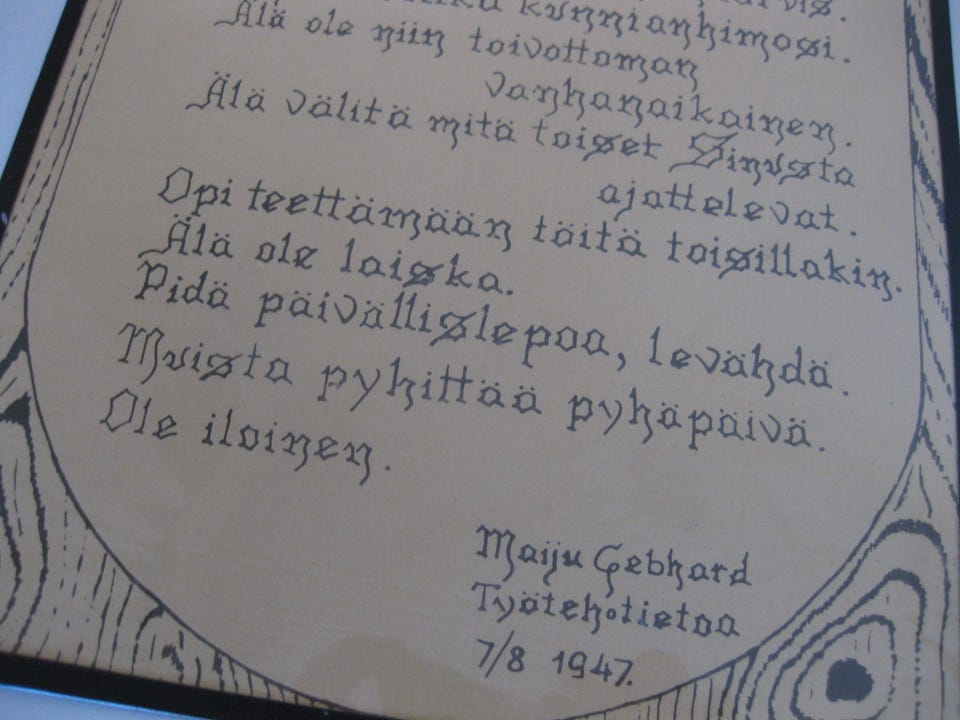 kunnianhimosi.
Älä ole niin toivottoman
vanhanaikainen.
Älä välitä mitä toiset Sinusta
ajattelevat.
Opi teettämään töitä toisillakin.
Älä ole laiska.
Pidä päivällislepoa, levähdä.
Muista pyhittää pyhäpäivä.
Ole iloinen.
Maiju Gebhard
Työtehotietoa
7/8 1947.